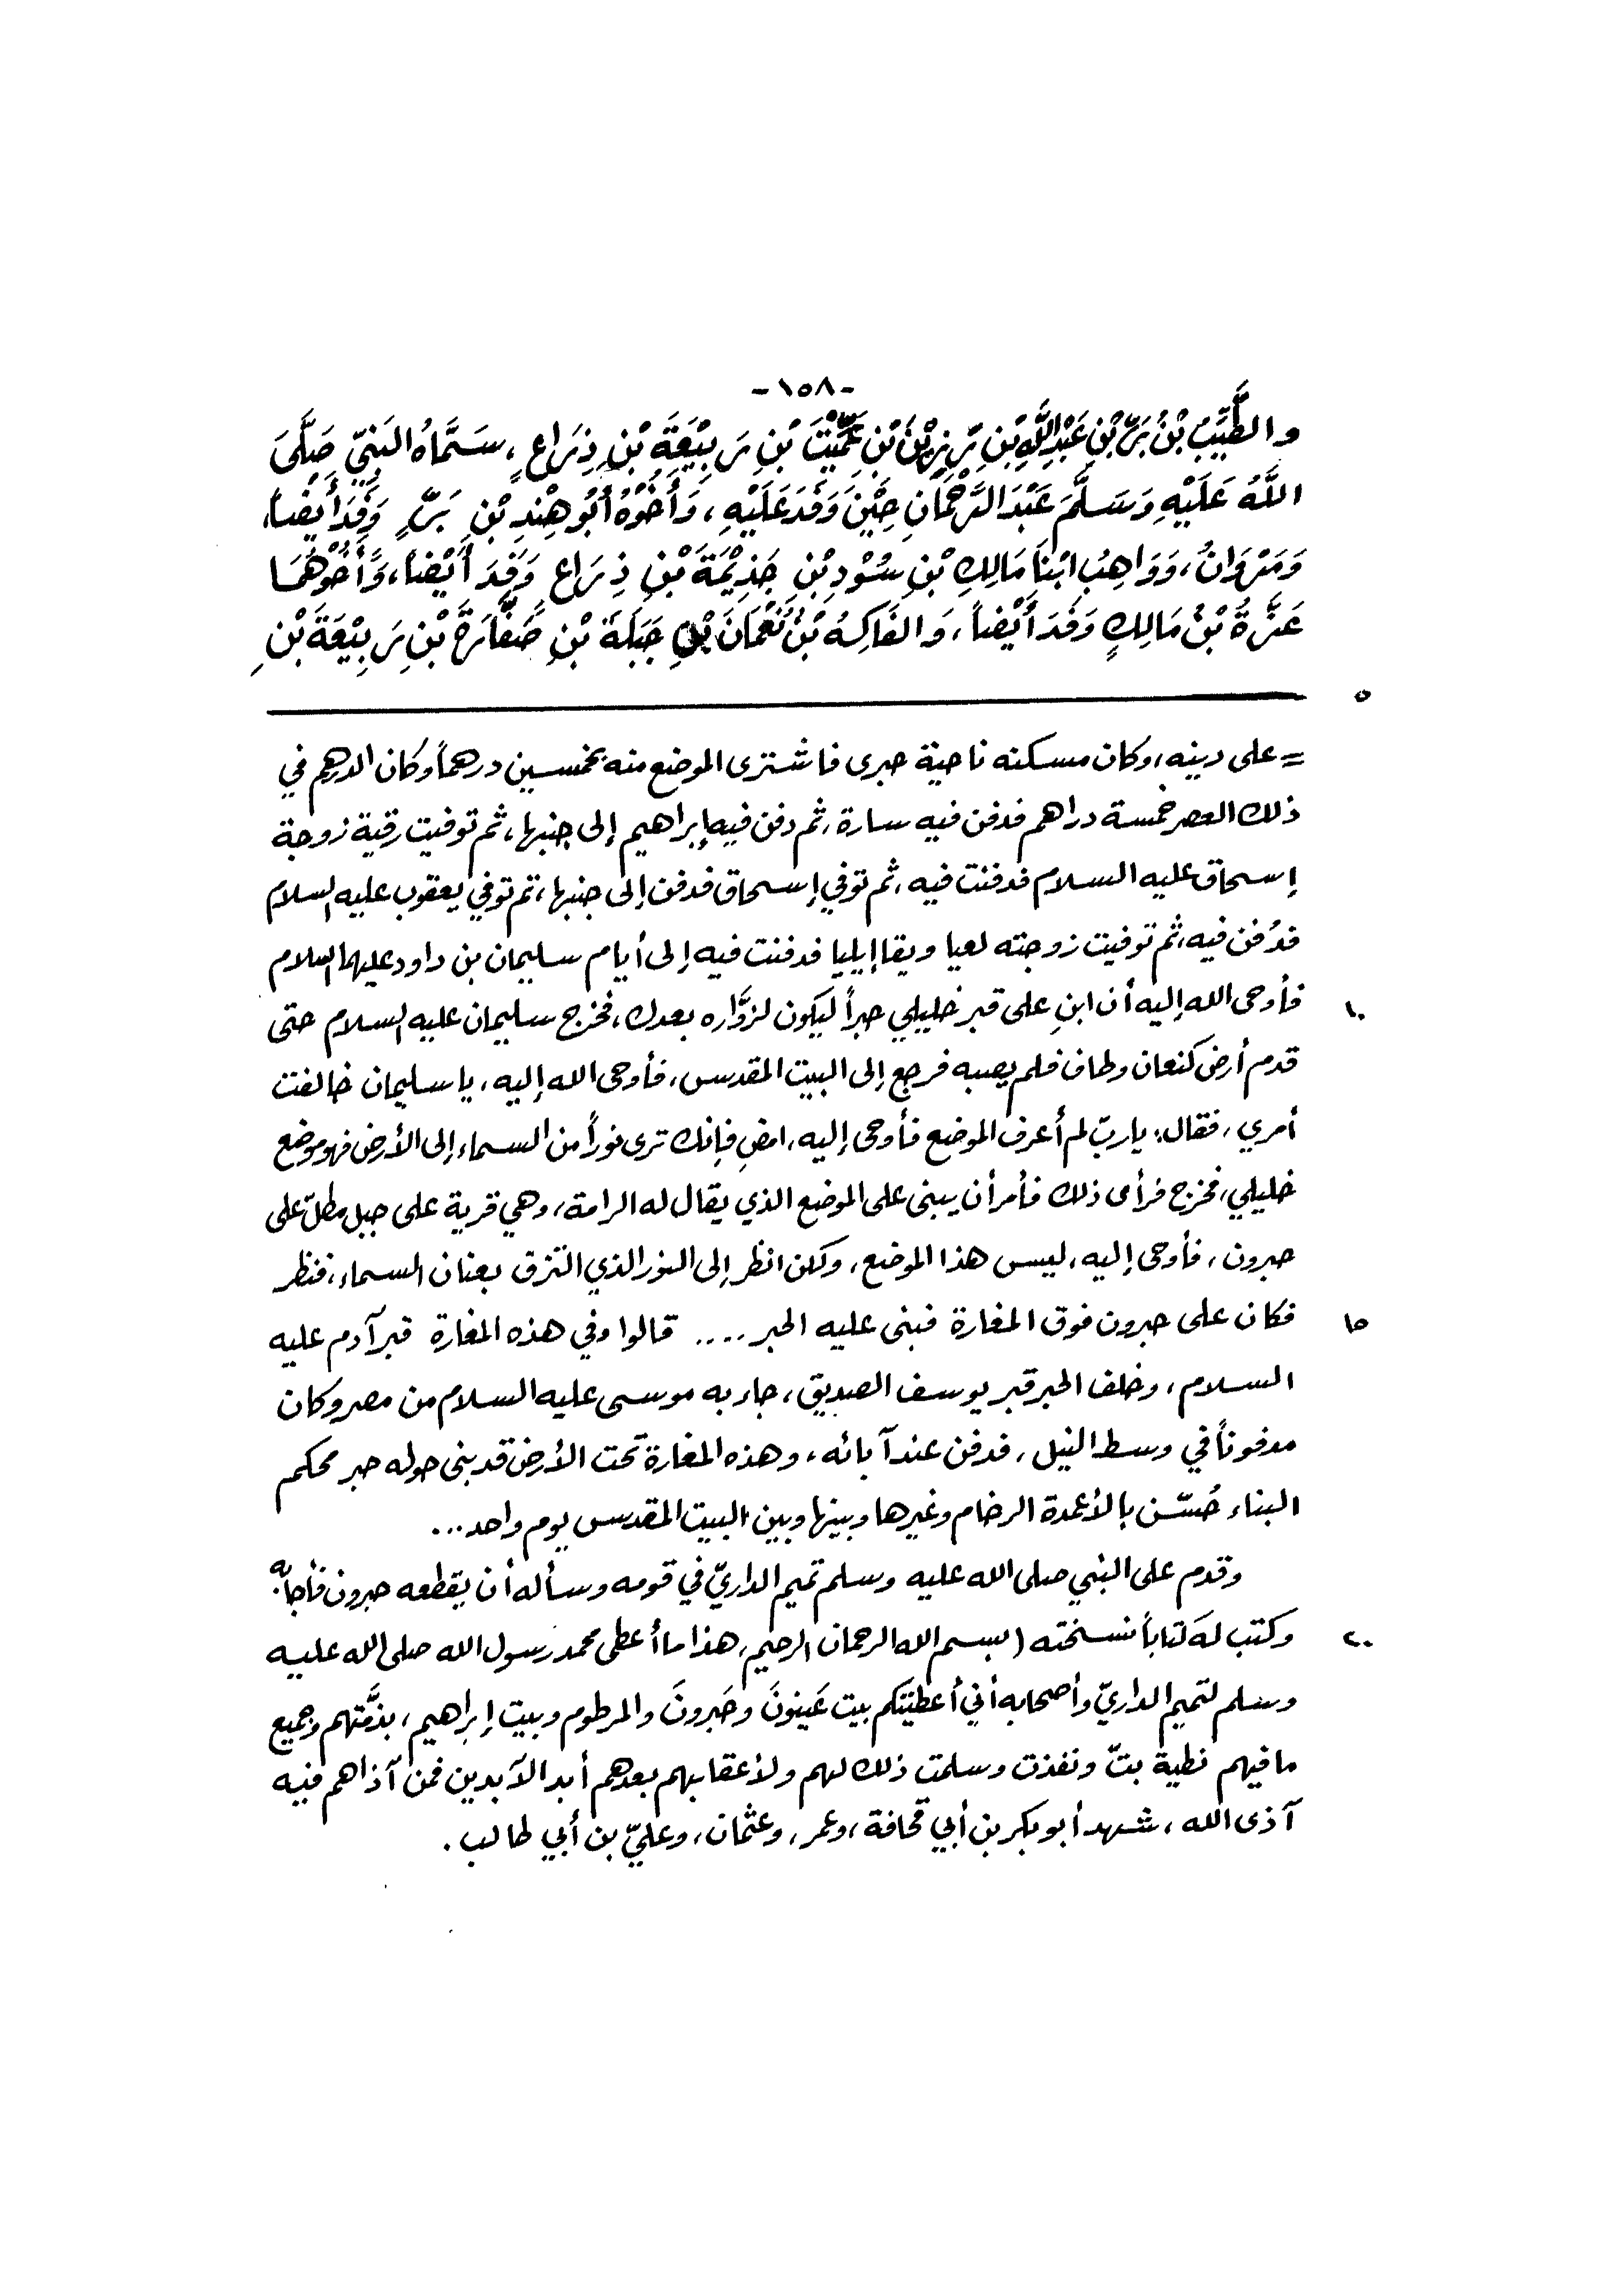 -١٥٨-
والطَّيِّبُ بْنُ بَرِّ بْنِ عَبْدِ اللَّهِ بْنِ بْنِ عِمِّيْتَ بْنِ رَبِيْعَةَ بْنِ ذِرَاعٍ، سَمَّاهُ النَبِيّ صَلَّىَ
اللَّهُ عَلَيْهِ وَسَلَّمَ عَبْدَ الرَّحْمَانِ حِيْنَ وَفَدَ عَلَيْهِ، وَأَخُوْهُ أَبُو هِنْدِ بْنِ بَرٍّ وَفَدَ أَيْضاً،
وَمَرْوَانُ، وَوَاهِبُ ابْنَا مَالِكِ بْنِ سُوْدِ بْنِ جَذِيْمَةَ بْنِ ذِرَاعٍ وَفَدَ أَيْضاً، وَأَخُوْهُمَا
عَزَّةُ بْنُ مَالِكٍ وَفَدَ أَيْضاً، وَالفَاكِهُ بْنُ نُعْمَانَ بْنِ جَبَلَةَ بْنِ صَفَّارَةَ بْنِ رَبِيْعَةَ بْنِ
٥
= على دينه، وكان مسكنه ناحية حبرى فاشترى الموضع منه بخمسين درهماً وكان الدرهم في
ذلك العصر خمسة دراهم فدفن فيه سارة، ثم دفن فيه إبراهيم إلى جنبها، ثم توفيت رقية زوجة
إسحاق عليه السلام فدفنت فيه، ثم توفي إسحاق فدفن إلى جنبها، ثم توفي يعقوب عليه السلام
فدُفن فيه، ثم توفيت زوجته لعيا ويقا إيليا فدفنت فيه إلى أيام سليمان بن داود عليهما السلام
١٠ فأوحى الله إليه أن ابنِ على قبر خليلي حبراً ليكون لزوَّاره بعدك، فخرج سليمان عليه السلام حتى
قدم أرض كنعان وطاف فلم يصبه فرجع إلى البيت المقدس، فأوحى الله إليه، يا سليمان خالفت
أمري، فقال: يا ربّ لم أعرف الموضع فأوحى إليه، امضِ فإنك ترى نوراً من السماء إلى الأرض فهو موضع
خليلي، فخرج فرأى ذلك فأمر أن يبنى على الموضع الذي يقال له الرامة، وهي قرية على جبل مطلّ على
حبرون، فأوحى إليه، ليس هذا الموضع، ولكن انظر إلى النور الذي التزق بعنان السماء، فنظر
١٥ فكان على حبرون فوق المغارة فبنى عليه الحبر .... قالوا وفي هذه المغارة قبر آدم عليه
السلام، وخلف الحبر قبر يوسف الصديق، جاء به موسى عليه السلام من مصر وكان
مدفوناً في وسط النيل، فدفن عند آبائه، وهذه المغارة تحت الأرض قد بنى حوله حبر محكم
البناء حُسّن بالأعمدة الرخام وغيرها وبينها وبين البيت المقدس يوم واحد...
وقدم على النبي صلى الله عليه وسلم تميم الداريّ في قومه وسأله أن يقطعه حبرون فأجابه
٢٠ وكتب له كتاباً نسخته (بسم الله الرحمان الرحيم، هذا ما أعطى محمد رسول الله صلى الله عليه
وسلم لتميم الداريّ وأصحابه أني أعطيتكم بيت عَينونَ وحَبرونَ والمرطوم وبيت إبراهيم، بذمَّتهم وجميع
ما فيهم نطية بتّ ونفذت وسلمت ذلك لهم ولأعقابهم بعدهم أبد الآبدين فمن آذاهم فيه
آذى الله، شهد أبو بكر بن أبي قحافة، وعمر، وعثمان، وعليّ بن أبي طالب.